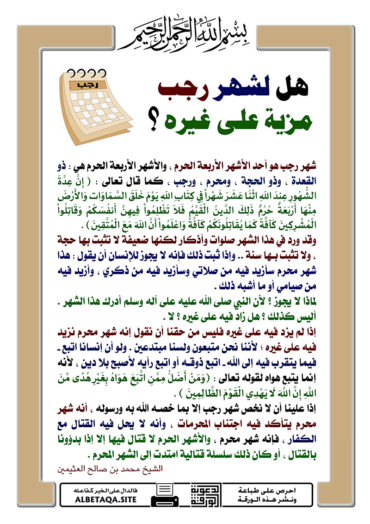 بسم الله الرحمن الرحيم
رجب
هل لشهر رجب
مزية على غيره ؟
شهر رجب هو أحد الأشهر الأربعة الحرم ، والأشهر الأربعة الحرم هي : ذو
القعدة ، وذو الحجة ، ومحرم ، ورجب ، كما قال تعالى : ( إِنَّ عِدَّةَ
الشُّهُورِ عِندَ اللهِ اثْنَا عَشَرَ شَهْراً فِي كِتَابِ اللهِ يَوْمَ خَلَقَ السَّمَاوَات وَالأَرْضَ
مِنْهَا أَرْبَعَةٌ حُرُمٌ ذَلِكَ الدِّينُ الْقَيِّمُ فَلاَ تَظْلِمُواْ فِيهِنَّ أَنفُسَكُمْ وَقَاتِلُواْ
الْمُشْرِكِينَ كَآفَّةً كَمَا يُقَاتِلُونَكُمْ كَآفَّةً وَاعْلَمُواْ أَنَّ اللهَ مَعَ الْمُتَّقِينَ ) .
وقد ورد في هذا الشهر صلوات وأذكار لكنها ضعيفة لا تثبت بها حجة
، ولا تثبت بها سنة .. وإذا ثبت ذلك فإنه لا يجوز للإنسان أن يقول : هذا
شهر محرم سأزيد فيه من صلاتي وسأزيد فيه من ذكري ، وأزيد فيه
من صيامي أو ما أشبه ذلك .
لماذا لا يجوز ؟ لأن النبي صلى الله عليه على آله وسلم أدرك هذا الشهر .
أليس كذلك ؟ هل زاد فيه على غيره ؟ لا .
إذا لم يزد فيه على غيره فليس من حقنا أن نقول إنه شهر محرم نزيد
فيه على غيره ؛ لأننا نحن متبعون ولسنا مبتدعين . ولو أن إنسانا اتبع ـ
فيما يتقرب فيه إلى الله ـ اتبع ذوقه أو اتبع رأيه لأصبح بلا دين ، لأنه
إنما يتبع هواه لقوله تعالى : ( وَمَنْ أَضَلُّ مِمَّنِ اتَّبَعَ هَوَاهُ بِغَيْرِ هُدًى مِّنَ
اللهِ إِنَّ اللهَ لَا يَهْدِي الْقَوْمَ الظَّالِمِينَ ) .
إذا علينا أن لا نخص شهر رجب إلا بما خصه الله به ورسوله ، أنه شهر
محرم يتأكد فيه اجتناب المحرمات ، وأنه لا يحل فيه القتال مع
الكفار ، فإنه شهر محرم ، والأشهر الحرم لا قتال فيها إلا إذا بدؤونا
بالقتال ، أو كان ذلك سلسلة قتالية امتدت إلى الشهر المحرم .
الشيخ محمد بن صالح العثيمين
احرص على طباعة
ونشر هذه الورقة
الورقة الدعوية
فالدال على الخير كفاعله
ALBETAQA.SITE